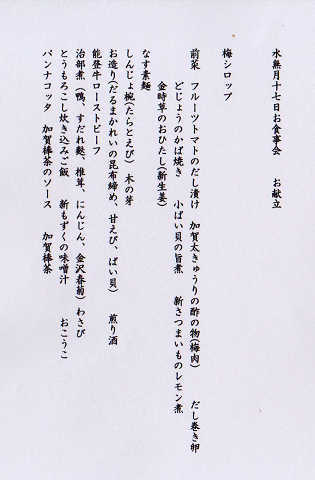 水無月十七日お食事会　お献立
梅シロップ
前菜　フルーツトマトのだし漬け　加賀太きゅうりの酢の物(梅肉)　だし巻き卵
どじょうのかば焼き　小ばい貝の旨煮　新さつまいものレモン煮
金時草のおひたし(新生姜)
なす素麺
しんじょ椀(たらとえび)　木の芽
お造り(だるまかれいの昆布締め、甘えび、ばい貝)　煎り酒
能登牛ローストビーフ
治部煮(鴨、すだれ麩、椎茸、にんじん、金沢春菊)わさび
とうもろこし炊き込みご飯　新もずくの味噌汁　おこうこ
パンナコッタ　加賀棒茶のソース　加賀棒茶